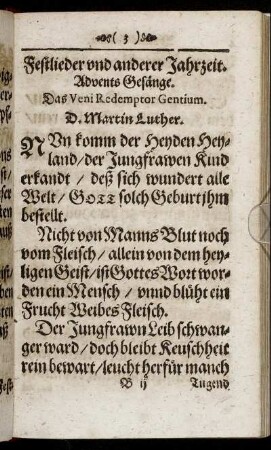 ( 3 )
Festlieder vnd anderer Jahrzeit.
Advents Gesänge.
Das Veni Redemptor Gentium.
D. Martin Luther.
NVn komm der Heyden Hey-
land/der Jungfrawen Kind
erkandt / deß sich wundert alle
Welt / GOTT solch Geburt jhm
bestellt.
Nicht von Manns Blut noch
vom Fleisch / allein von dem hey-
ligen Geist / ist Gottes Wort wor-
den ein Mensch / vnnd blüht ein
Frucht Weibes Fleisch.
Der Jungfrawn Leib schwan-
ger ward / doch bleibt Keuschheit
rein bewart/leucht herfür manch
B ij Tugend